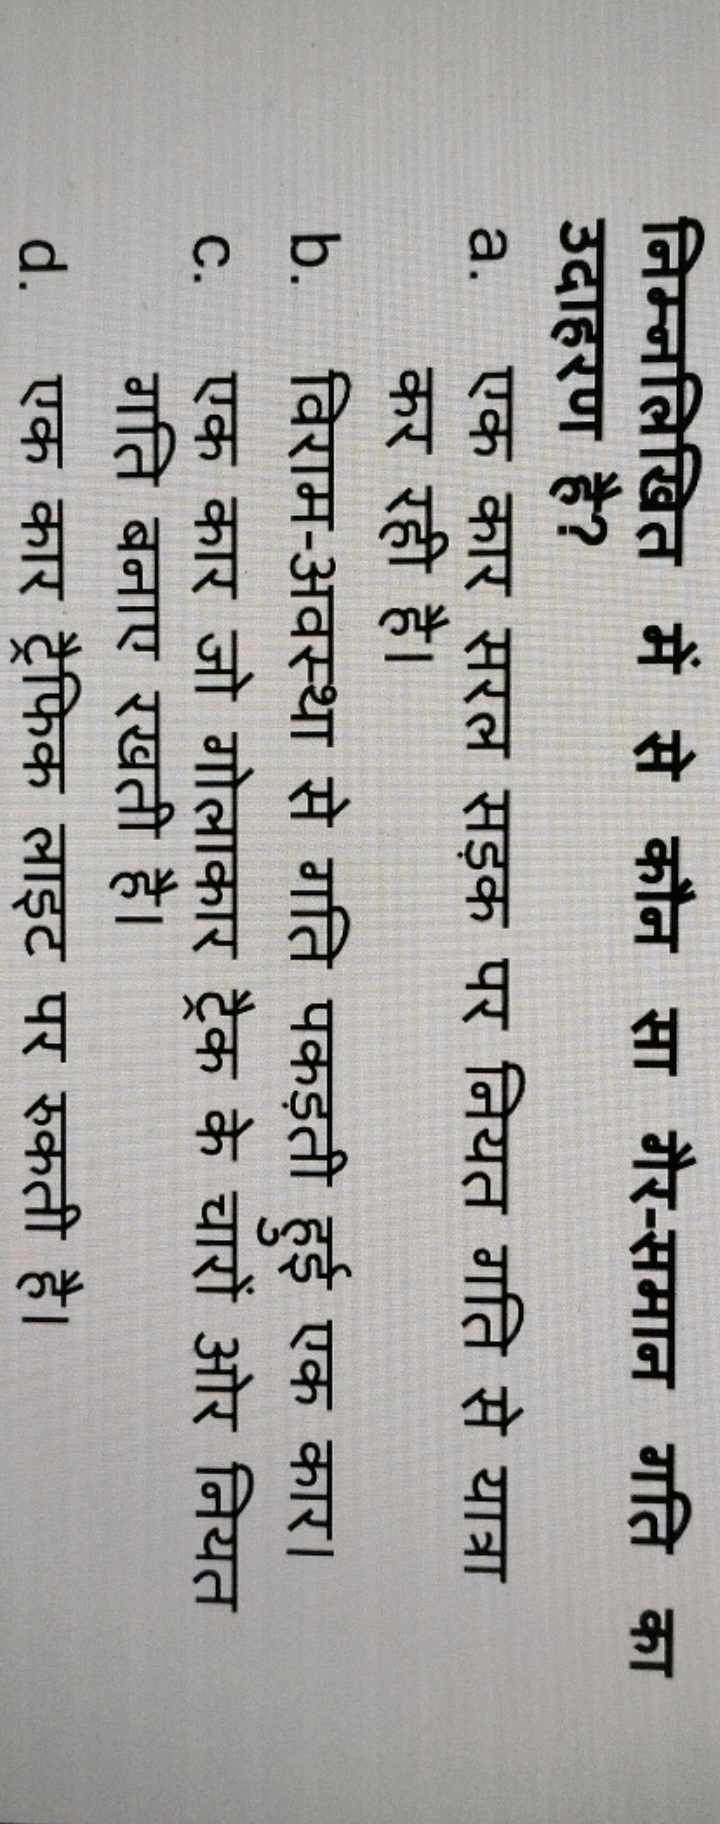 निम्नलिखित में से कौन सा गैर-समान गति का
उदाहरण है?
a. एक कार सरल सड़क पर नियत गति से यात्रा
कर रही है।
b. विराम-अवस्था से गति पकड़ती हुई एक कार।
c. एक कार जो गोलाकार ट्रैक के चारों ओर नियत
गति बनाए रखती है।
d. एक कार ट्रैफिक लाइट पर रुकती है।